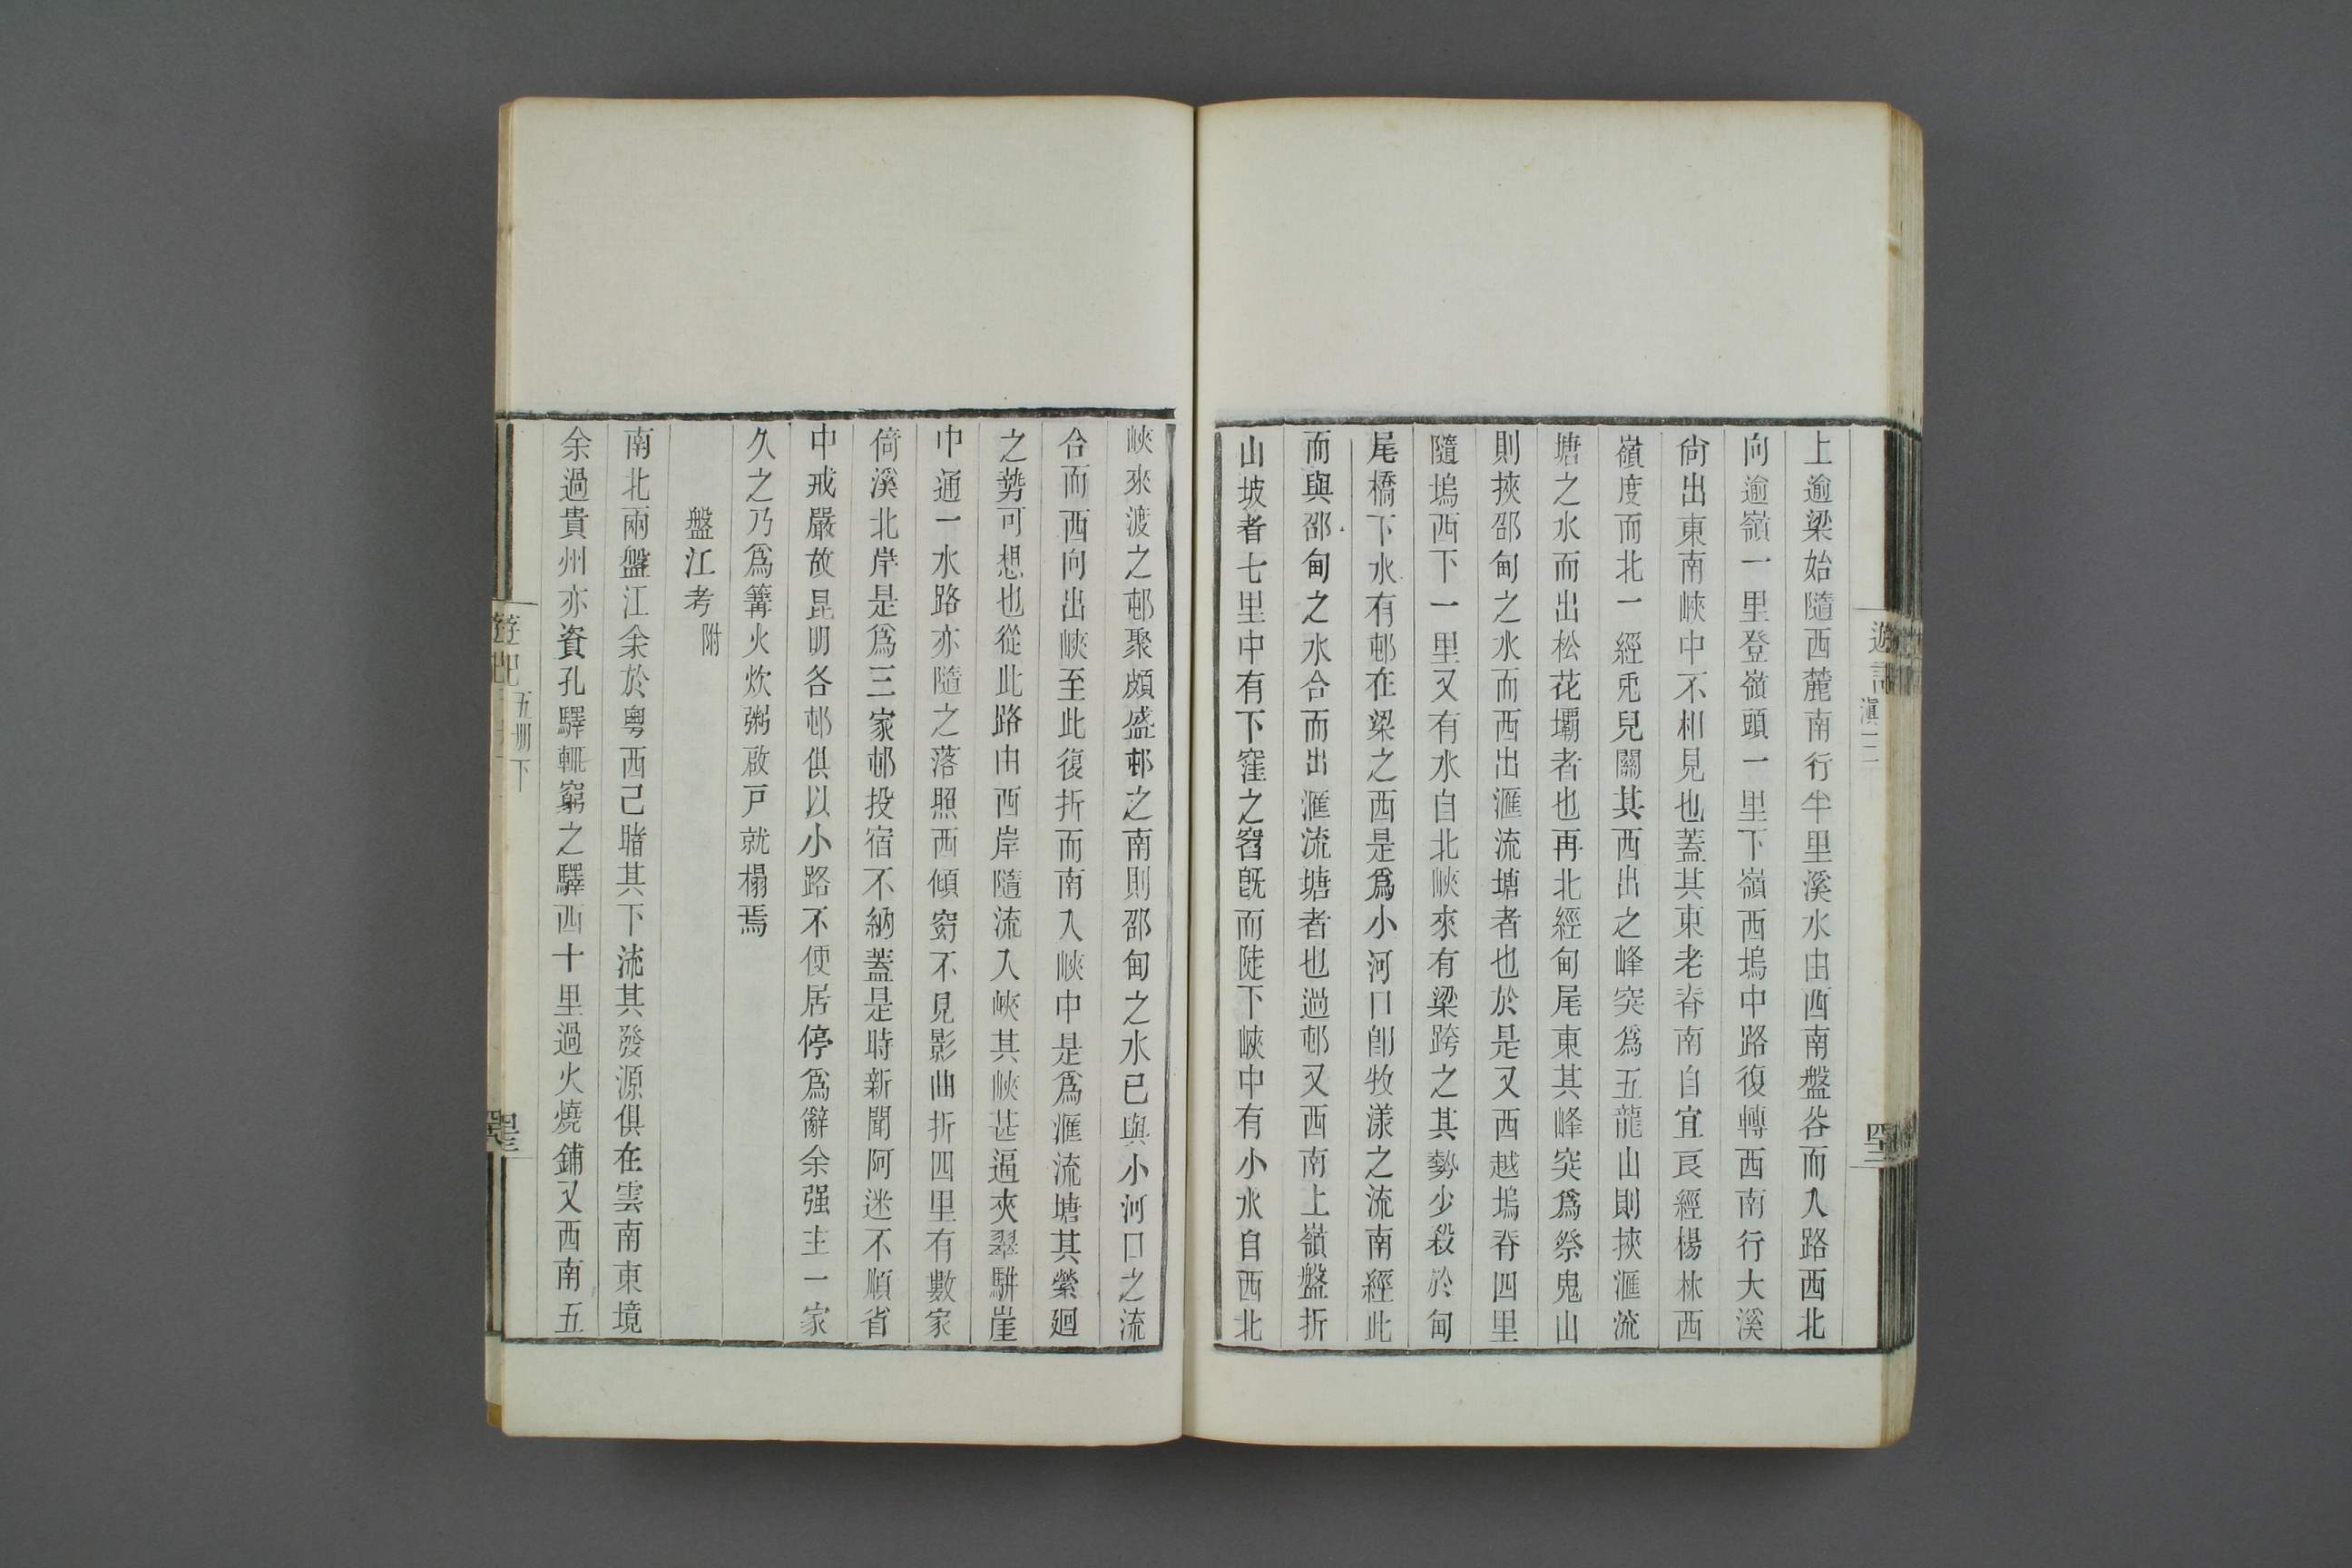 上逾梁始隨西麓南行半里溪水由西南盤谷而入路西北
向逾嶺一里登嶺頭一里下嶺西塢中路復轉西南行大溪
尙出東南峽中不相見也蓋其東老脊南自宜良經楊林西
嶺度而北一經兎兒關其西出之峰突爲五龍山則挾滙流
塘之水而出松花壩者也再北經甸尾東其峰突爲祭鬼山
則挾邵甸之水而西出滙流塘者也於是又西越塢脊四里
隨塢西下一里又有水自北峽來有梁跨之其勢少殺於甸
尾橋下水有邨在梁之西是爲小河口卽牧漾之流南經此
而與邵甸之水合而出滙流塘者也過邨又西南上嶺盤折
山坡者七里中有下窪之窞旣而陡下峽中有小水自西北
峽來渡之邨聚頗盛邨之南則邵甸之水已與小河口之流
合而西向出峽至此復折而南入峽中是爲滙流塘其縈廻
之勢可想也從此路由西岸隨流入峽其峽甚逼夾翠騈崖
中通一水路亦隨之落照西傾窈不見影曲折四里有數家
倚溪北岸是爲三家邨投宿不納蓋是時新聞阿迷不順省
中戒嚴故昆明各邨俱以小路不便居停爲辭余强主一家
久之乃爲篝火炊粥啟戸就榻焉
盤江考附
南北兩盤江余於粵西已睹其下流其發源俱在雲南東境
余過貴州亦資孔驛輒窮之驛西十里過火燒鋪又西南五
遊記
五册下
遊記
滇三